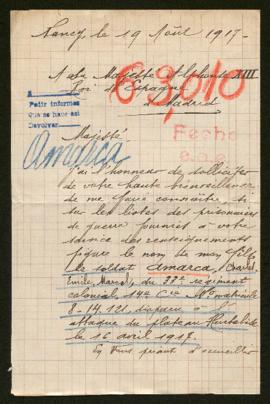 Nancy, le 19 Août 1917.
A sa Majesté Alphonse XIII
Roi d'Espagne
à Madrid
63,010
A
Pedir informes
Que se hace así
Devolver
Fecha
Amarca
Majesté
J'ai l'honneur de solliciter
de votre haute bienveillance
de me faire connaître, si
sur les listes des prisonniers
de guerre fournies à votre
des renseignements
figure le nom de mon fils
le soldat Amarca, (Charles
Emile Marie), du 33e régiment
colonial 14e Cie No matricule
8-14.121, disparu à l'
attaque du plateau Hurtebise
le 16 avril 1917.
En vous priant d'accueillir